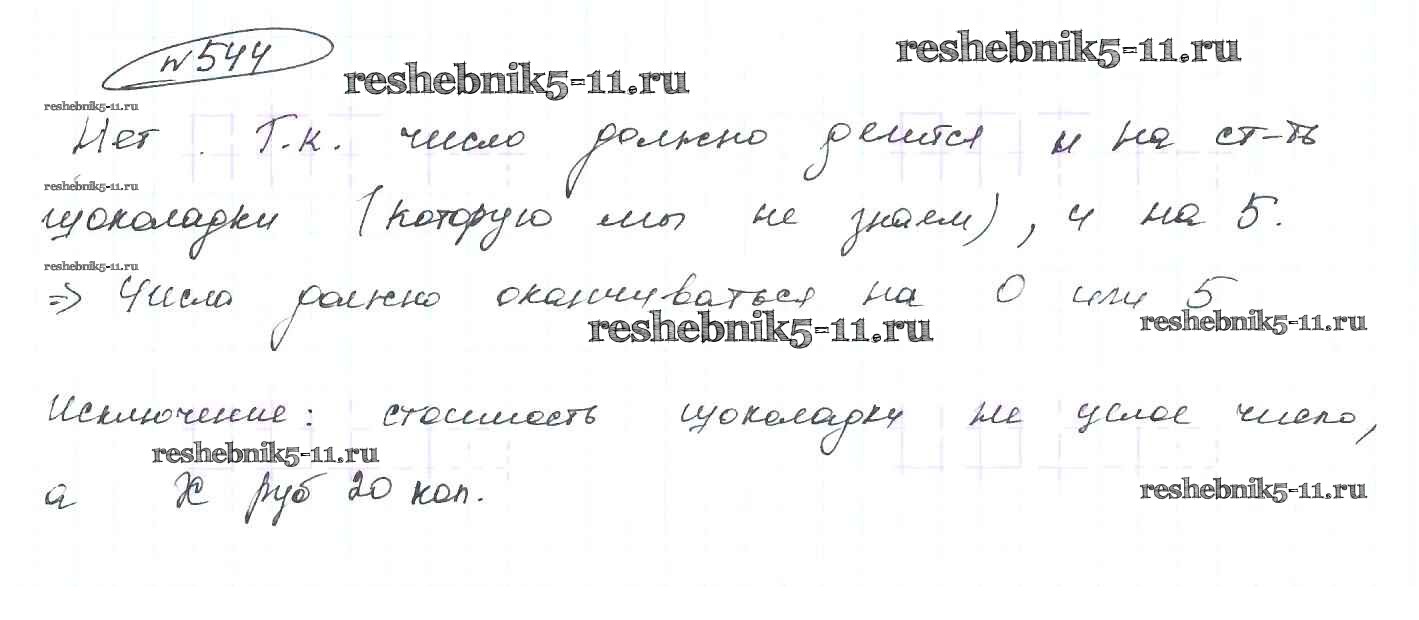 №544
reshebnik5-11.ru
reshebnik5-11.ru
reshebnik5-11.ru
Нет. Т.к. число должно делится и на ст-ть
reshebnik5-11.ru
шоколадки (которую мы не знаем), и на 5.
reshebnik5-11.ru
=> Числа должно оканчиваться на 0 или 5
reshebnik5-11.ru
reshebnik5-11.ru
Исключение: стоимость шоколадки не целое число,
reshebnik5-11.ru
а Х руб 20 коп.
reshebnik5-11.ru